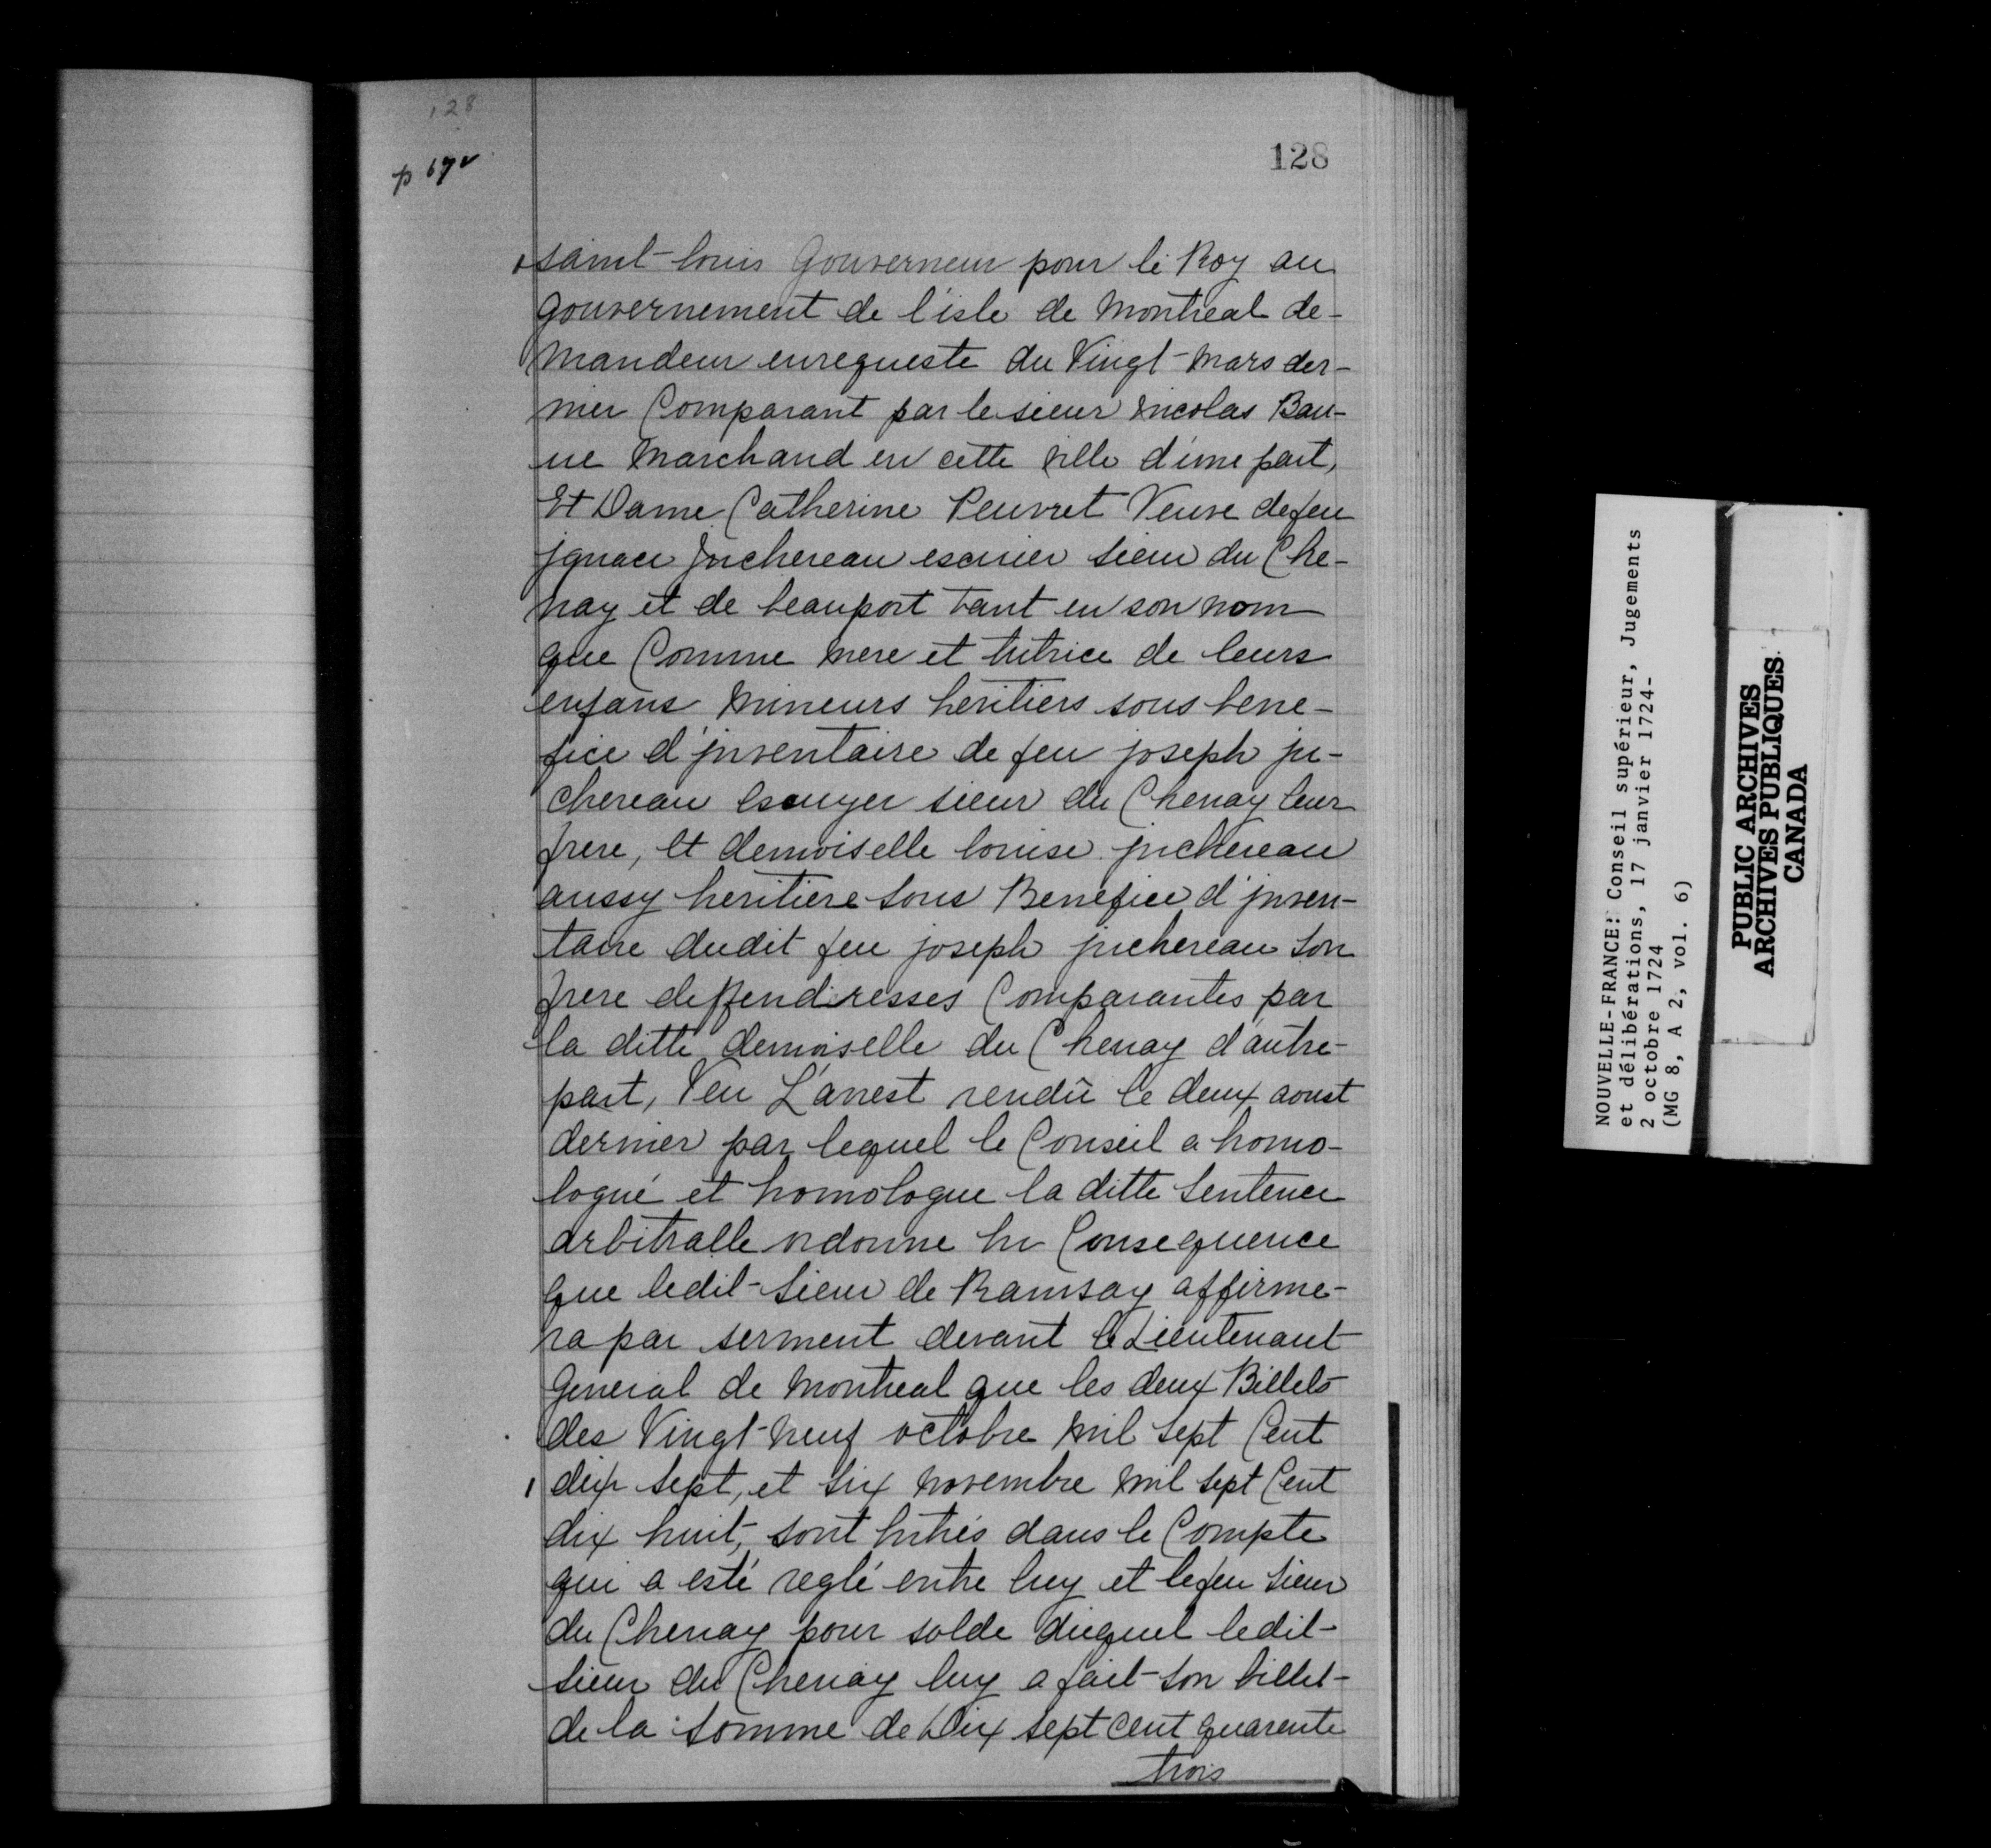 128
p 67v
128
saint-louis Gouverneur pour le Roy au
gouvernement de l'isle de Montreal de-
mandeur enrequeste du Vingt-Mars der-
nier Comparant par le sieur Nicolas Bau-
ne Marchand en cette ville d'une part,
Et Dame Catherine Peuvret Veuve defeu
jgnace Juchereau escuier sieur du Che-
nay et de beauport tant en son nom
que Comme mere et tutrice de leurs
enfans Mineurs heritiers sous bene-
fice d'jnventaire de feu joseph ju-
chereau Escuyer sieur du Chenay leur
frere, Et demoiselle louise juchereau
aussy heritiere sous Benefice d'jnven-
taire dudit feu joseph juchereau son
frere deffendresses Comparantes par
la ditte demoiselle du Chenay d'autre-
part, Veu L'arrest rendû le deux aoust
dernier par lequel le Conseil a homo-
logué et homologue la ditte Sentence
arbitralle ordonne En Consequence
que ledit-Sieur de Ramsay affirme-
ra par serment devant le Lieutenant
General de Montreal que les deux Billets
des Vingt-neuf octobre Mil Sept Cent
dix Sept, et Six Novembre Mil Sept Cent
dix huit, sont Entrés dans le Compte
qui a esté reglé entre luy et lefeu Sieur
du Chenay pour solde duquel ledit-
Sieur du Chenay luy a fait-son billet-
de la Somme de Dix Sept Cent quarente
trois
NOUVELLE-FRANCE: Conseil supérieur, Jugements
et délibérations, 17 janvier 1724-
2 octobre 1724
(MG 8, A 2, vol. 6)
PUBLIC ARCHIVES
ARCHIVES PUBLIQUES
CANADA